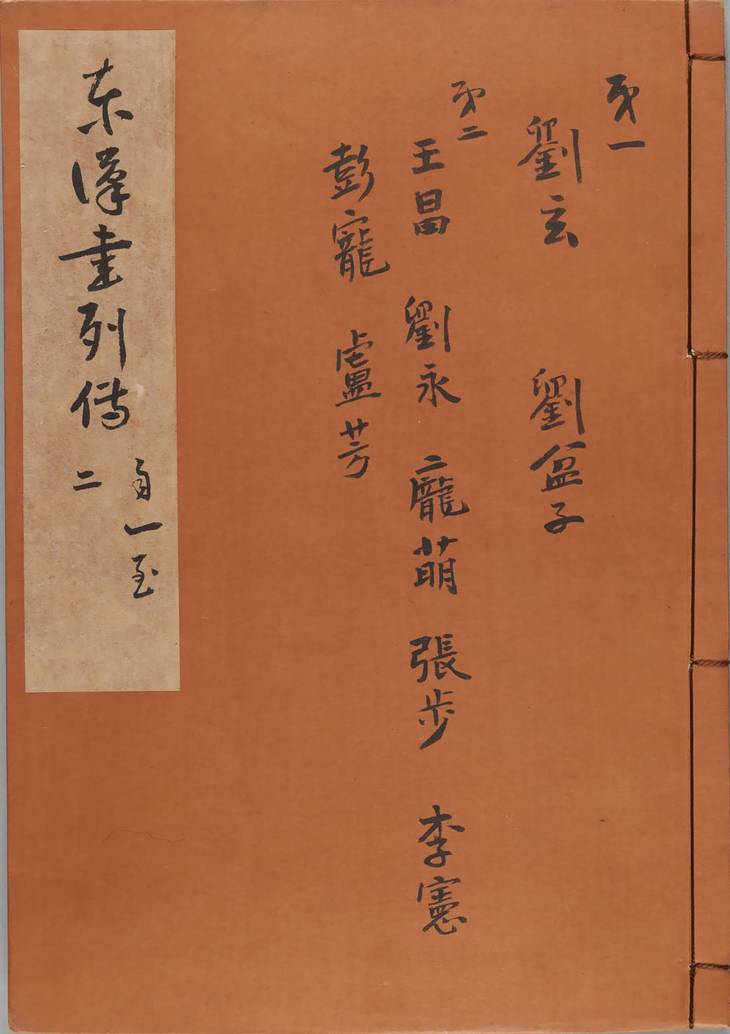 第一
劉玄 劉盆子
第二
王昌 劉永 龐萌 張步 李憲
彭寵 盧芳
東漢書列傳
自一至
二